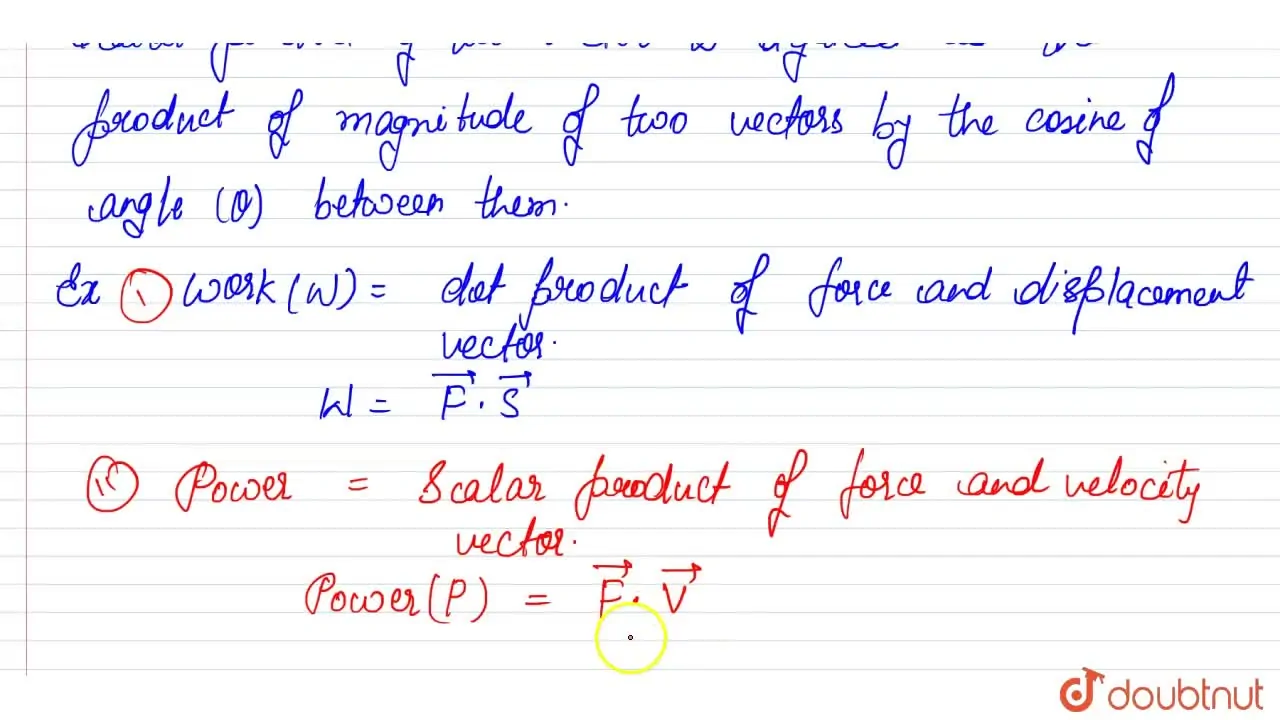 product of magnitude of two vectors by the cosine of
angle (θ) between them.
Ex (i) Work (W) = dot product of force and displacement
vector.
W = F⃗ · S⃗
(ii) Power = Scalar product of force and velocity
vector.
Power (P) = F⃗ · V⃗
doubtnut